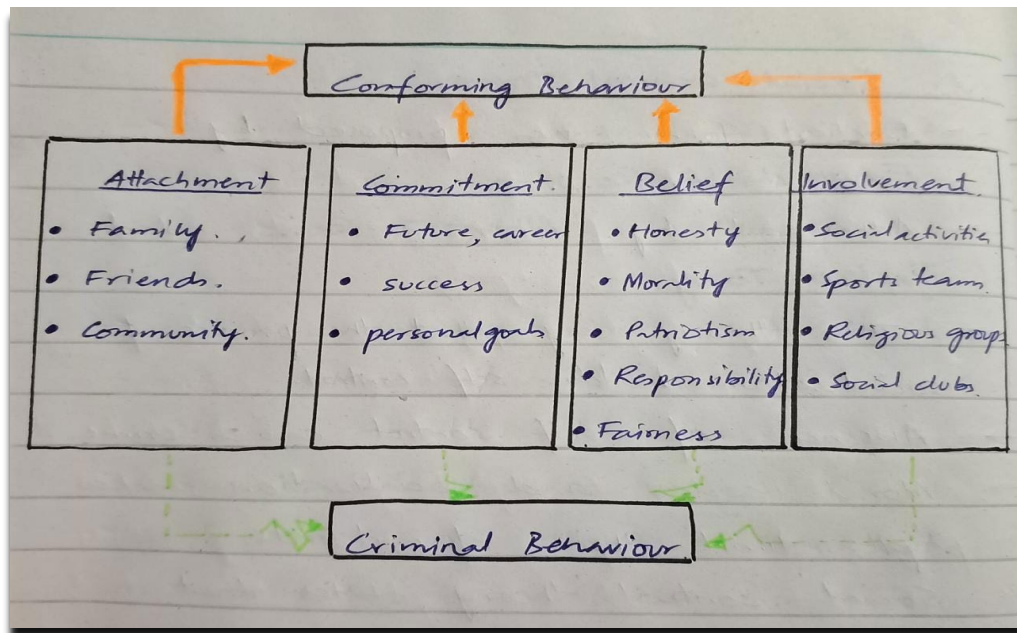 Conforming Behaviour
Attachment
• Family.
• Friends.
• Community.
Commitment.
• Future, career
• success
• personal goals
Belief
• Honesty
• Morality
• Patriotism
• Responsibility
• Fairness
Involvement.
• Social activities
• Sports team
• Religious groups
• Social clubs
Criminal Behaviour